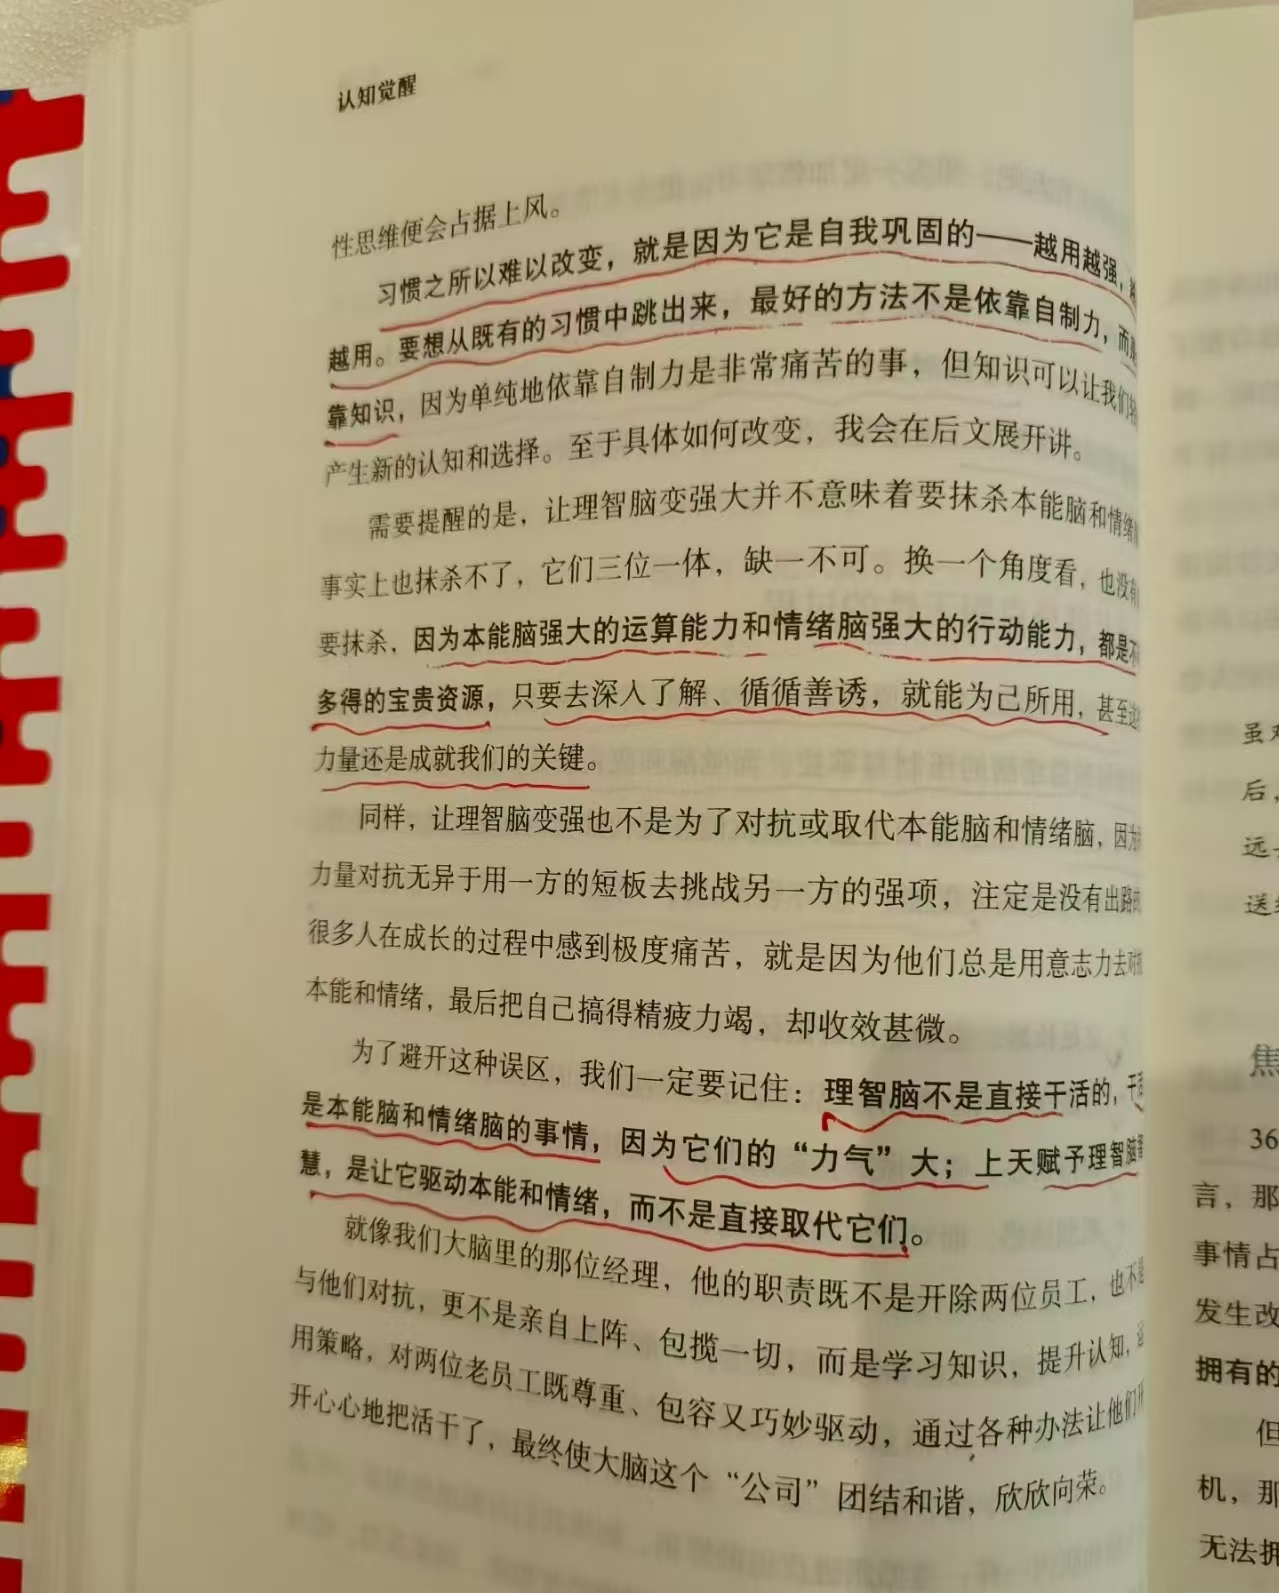 认知觉醒
性思维便会占据上风。
习惯之所以难以改变，就是因为它是自我巩固的——越用越强，
越用。要想从既有的习惯中跳出来，最好的方法不是依靠自制力，而是
靠知识，因为单纯地依靠自制力是非常痛苦的事，但知识可以让我们
产生新的认知和选择。至于具体如何改变，我会在后文展开讲。
需要提醒的是，让理智脑变强大并不意味着要抹杀本能脑和情绪
事实上也抹杀不了，它们三位一体，缺一不可。换一个角度看，也没有
要抹杀，因为本能脑强大的运算能力和情绪脑强大的行动能力，都是不
多得的宝贵资源，只要去深入了解、循循善诱，就能为己所用，甚至
力量还是成就我们的关键。
同样，让理智脑变强也不是为了对抗或取代本能脑和情绪脑，因为
力量对抗无异于用一方的短板去挑战另一方的强项，注定是没有出路
很多人在成长的过程中感到极度痛苦，就是因为他们总是用意志力去对
本能和情绪，最后把自己搞得精疲力竭，却收效甚微。
为了避开这种误区，我们一定要记住：理智脑不是直接干活的，干
是本能脑和情绪脑的事情，因为它们的“力气”大；上天赋予理智脑
慧，是让它驱动本能和情绪，而不是直接取代它们。
就像我们大脑里的那位经理，他的职责既不是开除两位员工，也不是
与他们对抗，更不是亲自上阵、包揽一切，而是学习知识，提升认知，
用策略，对两位老员工既尊重、包容又巧妙驱动，通过各种办法让他们
开心心地把活干了，最终使大脑这个“公司”团结和谐，欣欣向荣。
虽
后，
远
送
焦
36
言，那
事情占
发生改
拥有的
但
机，那
无法拥